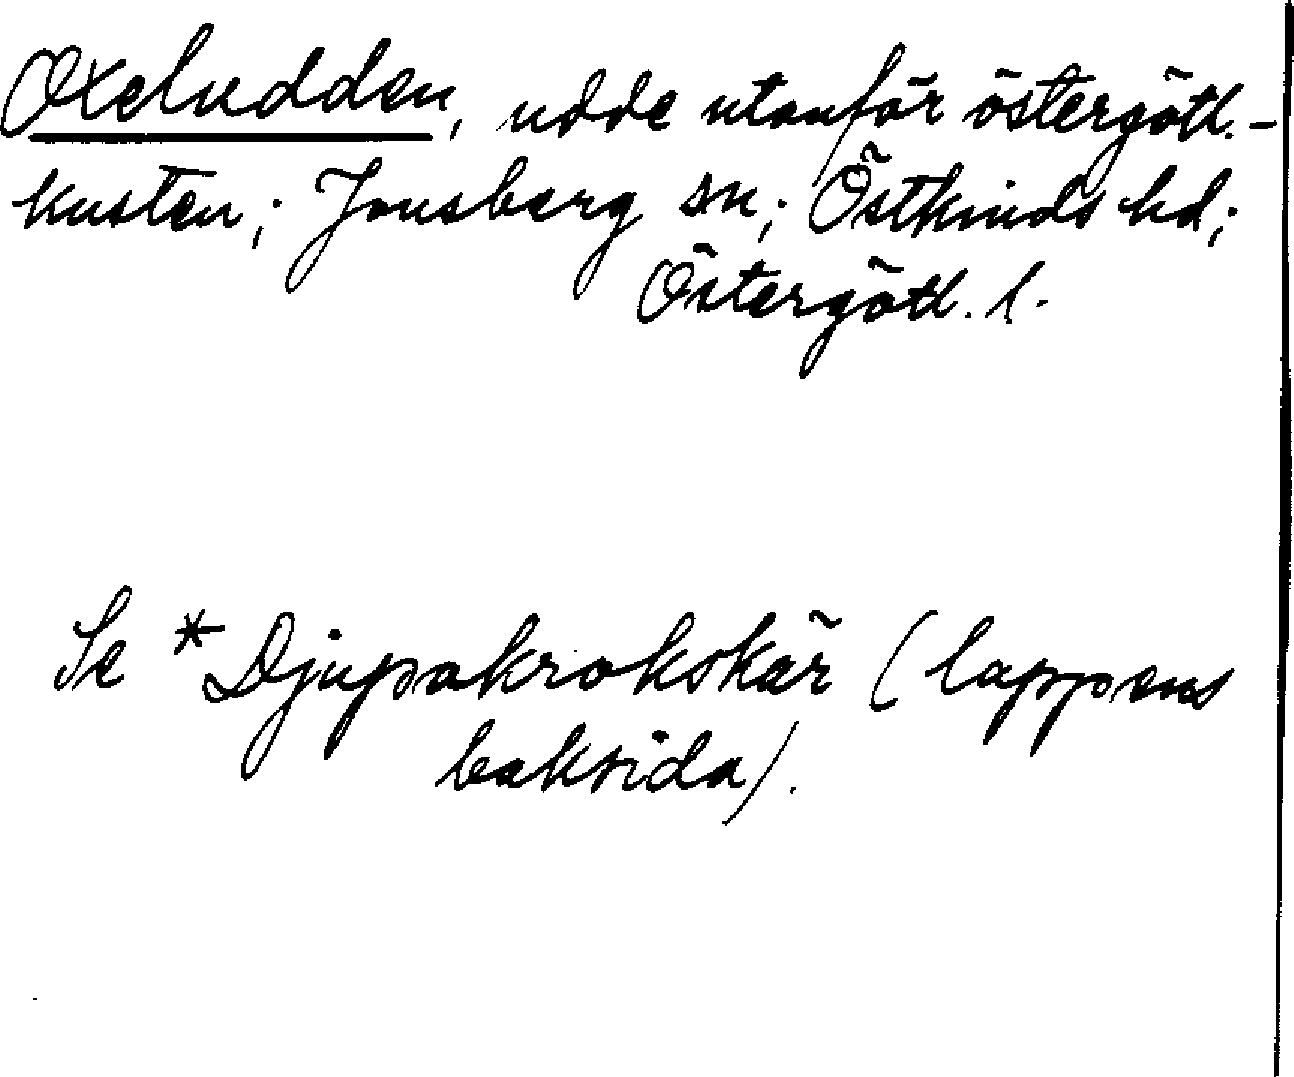 Oxeludden, udde utanför östergötl.-
kusten; Jonsberg sn; Östkinds hd;
Östergötl. l.
Se *Djupakrokskär (lappens
baksida).